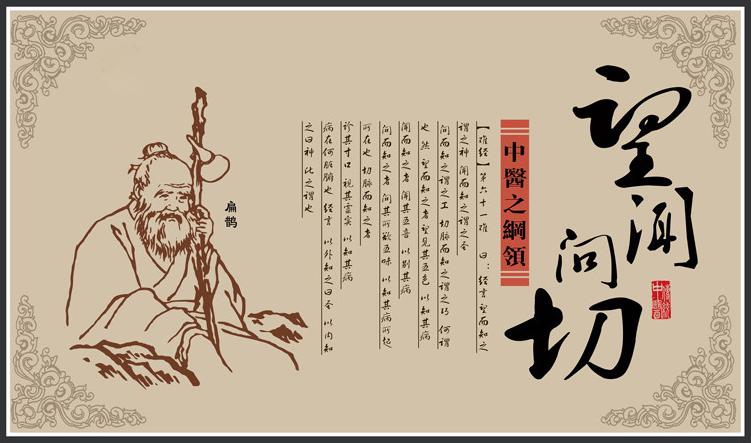 望闻问切
中醫之綱領
【难经】第六十一难 曰：经言望而知之
谓之神 闻而知之谓之圣
问而知之谓之工 切脉而知之谓之巧 何谓
也 然 望而知之者 望见其五色 以知其病
闻而知之者 闻其五音 以别其病
问而知之者 问其所欲五味 以知其病所起
所在也 切脉而知之者
诊其寸口 视其虚实 以知其病
病在何脏腑也 经言 以外知之曰圣 以内知
之曰神 此之谓也
扁鹊